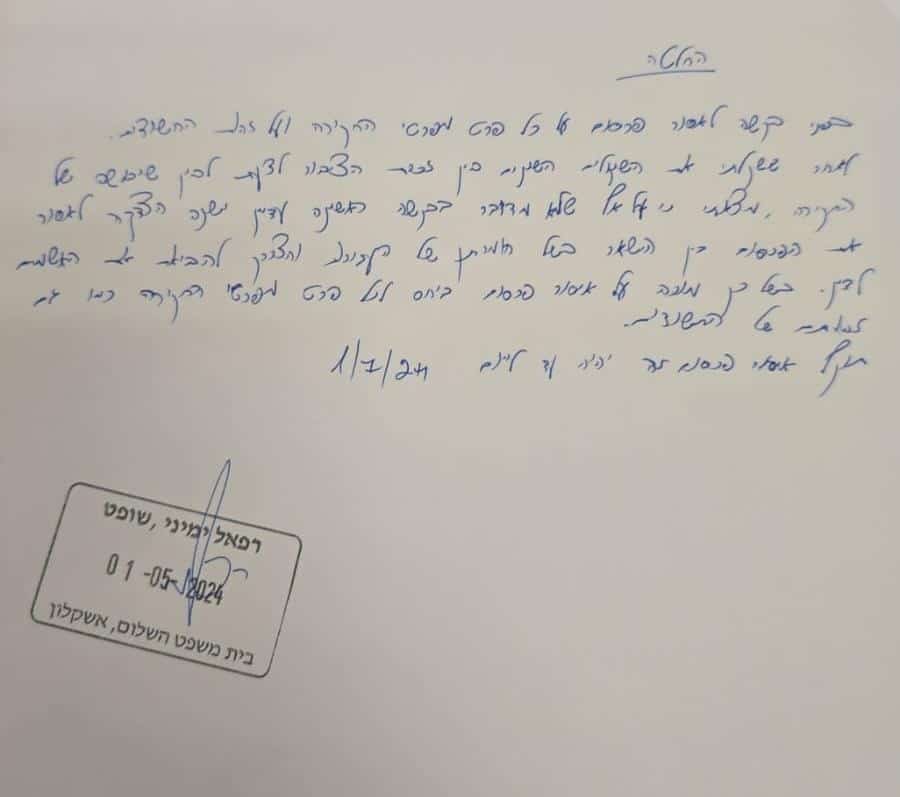 החלטה
בפני בקשה לאסור פרסום על כל פרט מפרטי החקירה ועל זהות החשודים.
לאחר ששקלתי את השיקולים השונים בין זכות הציבור לדעת לבין שיבושם של
החקירה, מצאתי כי על אף שלא מדובר בבקשה ראשונה עדיין ישנה הצדקה לאסור
את הפרסום בין השאר בשל חומרתן של העבירות והצורך להביא את האשמים
לדין. בשל כן מורה על איסור פרסום ביחס לכל פרט מפרטי החקירה כמו גם
לזהותם של החשודים.
תוקף איסור פרסום זה יהיה עד ליום 1/7/24
רפאל ימיני, שופט
01-05-2024
בית משפט השלום, אשקלון